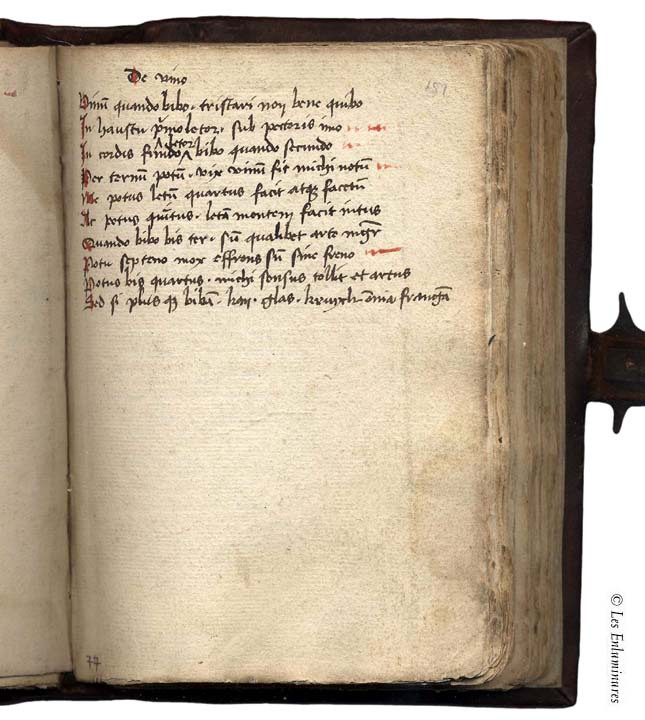 De vino
151
Vinū quando bibo · tristari non bene quibo
In haustu pͥmo letor · sub pectoris imo
In cordis fundo letor bibo quando secundo
Per ternū potū · vix vinum fit michi notū
Me potus letū quartus facit atqꝫ facetū
Ac potus quītus · letā mentem facit intus
Quando bibo bis ter · sū qualibet arte mgr̄
Potu septeno mox effrens sū sine freno
Potus bis quartus · michi sensus tollit et artus
Sed si plus qꝫ bibā · kan · glas · omnia frangā
77
© Les Enluminures